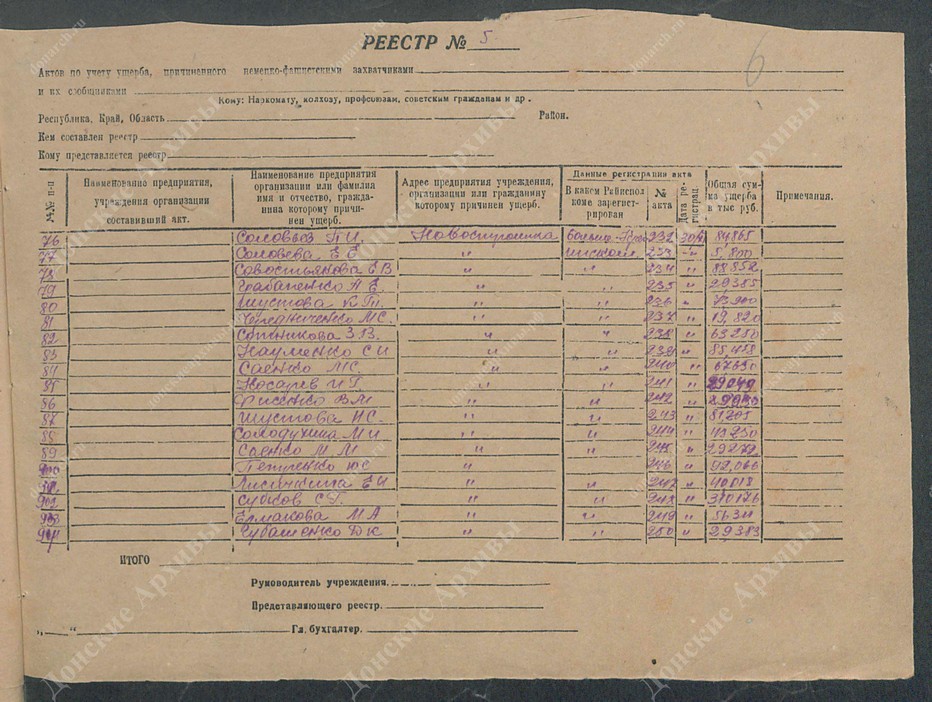 РЕЕСТР № 5
6
Актов по учету ущерба, причиненного немецко-фашистскими захватчиками
и их сообщниками
Кому: Наркомату, колхозу, профсоюзам, советским гражданам и др.
Республика, Край, Область Район.
Кем составлен реестр
Кому представляется реестр
№№ п-п
Наименование предприятия, учреждения организации составивший акт.
Наименование предприятия организации или фамилия имя и отчество, гражданина которому причинен ущерб.
Адрес предприятия учреждения, организации или гражданину которому причинен ущерб.
Данные регистрации акта
В каком Райисполкоме зарегистрирован
№ акта
Дата регистрац.
Общая сумма ущерба в тыс руб.
Примечания.
76 Соловьев П И. 232 84865
77 Соловева Е Е " 233 " 5.800
78 Савостьянова Е В " " 234 " 88852
79 Грабаненко А Е. " " 235 " 29385
80 Шустова К П. " " 236 " 73900
81 Чередниченко М С. " " 237 " 19,820
82 Сотникова З. В. " " 238 " 63250
83 Науменко С И " " 239 " 85478
84 Саенко М С. " " 240 " 67690
85 Носарев И Г. " " 241 " 29049
86 Фисенко В М " " 242 "
87 Шустова Н С. " " 243 " 81205
88 Солодухина М И " " 244 " 49250
89 Саенко М. М " " 245 " 29279
Петиченко Ю С " 246 " 92,066
Лисичкина Е И " 247 " 40018
Сучков С Г " " 248 " 310176
Ермакова М А " " 249 " 51311
Чубашенко Д К " " 250 " 29383
ИТОГО
Руководитель учреждения.
Представляющего реестр.
„ “ Гл. бухгалтер.
Донские Архивы
donarch.ru